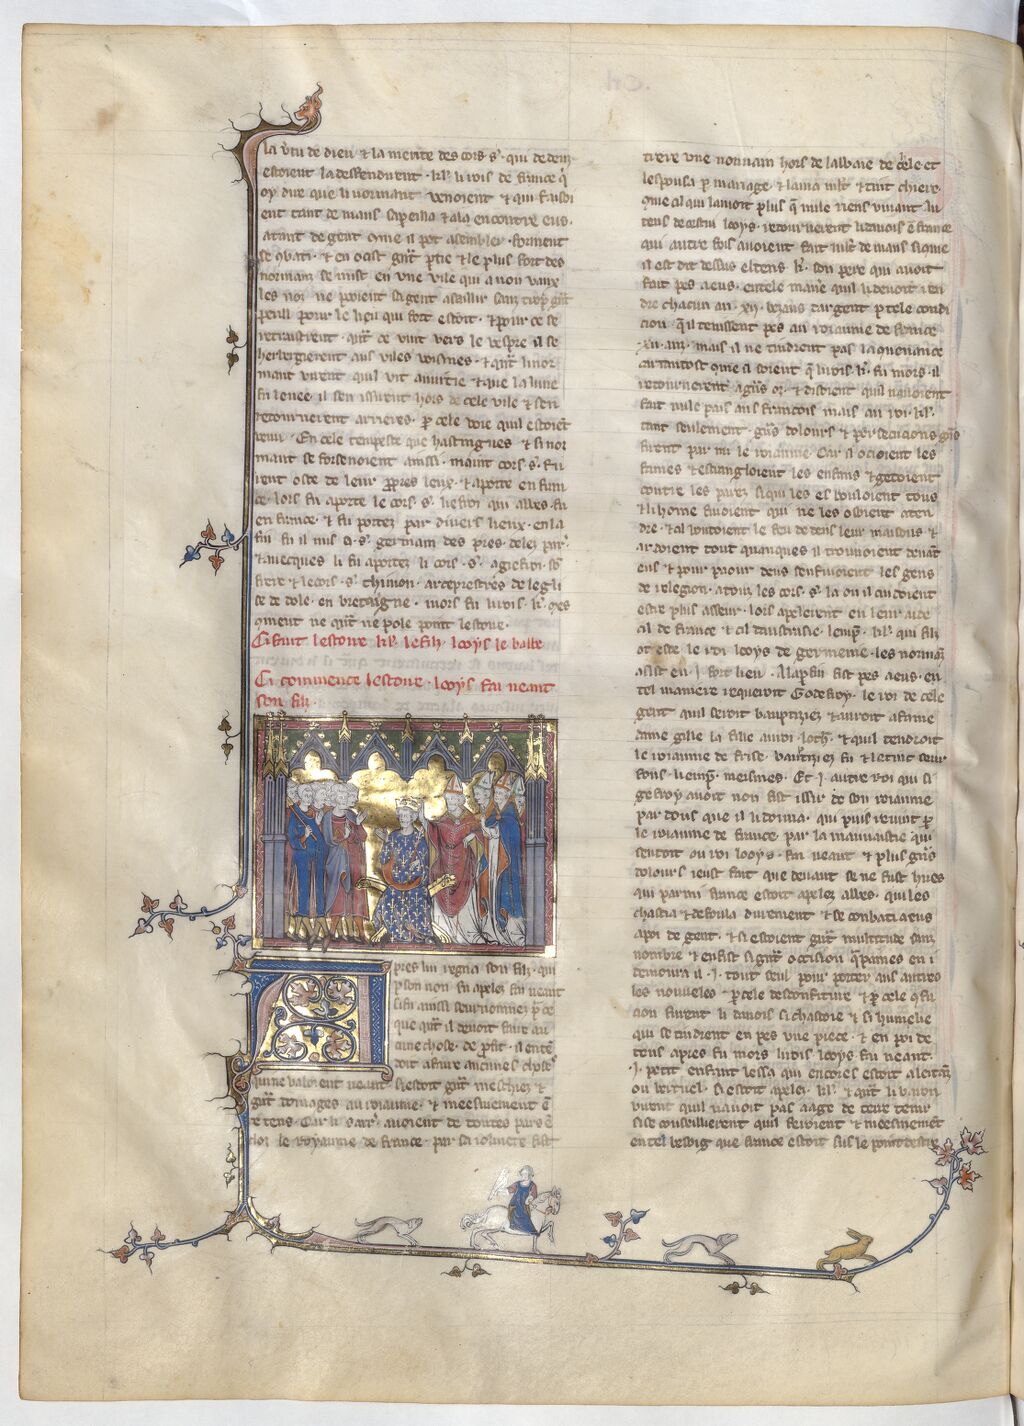 la v̾tu de dieu ⁊ la merite des cors s̾. qui dedenz
estoient la deffendirent. kl̾. li rois de france q̾nt
oy dire que li normant venoient ⁊ qui faisoi
ent tant de maus sapeillo ⁊ ala encontre eus.
atant de gent come il pot asembler. forment
se 9bati. ⁊ en ocist g̃nt p̃tie ⁊ le plus fort des
normanz se mist en une vile qui a non vaux
les noi ne pooient sa gent assaillir sanz trop g̃nt
perill pour le lieu qui fort estoit. ⁊ pour ce se
retraistrent. q̃nt ce vint vers le vespre il se
herbergierent aus viles voisines. ⁊ q̃nt li nor
mant virent quil vit anuitie ⁊ que la lune
fu levee il sen issirent hors de cele vile ⁊ sen
retournerent arrieres. p̃ cele voie quil estoiẽt
venu. En cele tempeste que hastingues ⁊ si nor
mant se forsenoient ainssi. maint cors s̾. fu
rent oste de leur p̃pres leux. ⁊ aporte en fran
ce. lors fu aporte le cors. s̾. liefroi qui alles fu
en france. ⁊ fu portez par divers lieux. en la
fin fu il mis a. s̾. germain des pres. delez par̾.
⁊ avecques li fu aportez li cors. s̾. agiefroi. so̾
frere ⁊ le cors. s̾. thurion. arceprestres de legli
se de dole. en bretaigne. mors fu li rois. kl̾. mes
coment ne q̃nt ne pole point lestoire.
Ci faut lestoire kl̾. le filz looys le baube
Ci commence lestoire. looys fai neant
son filz.
Apres lui regna son filz. qui
p̃ son non fu apelez fai neant
li fu ainssi seurnommez p̃ ce
que q̃nt il devoit faire au
cune chose. de profit. il ente̾
doit a faire aucunes chose̾
qui ne valoient neant. si estoit g̃nt meschiez ⁊
g̃nt domages au roiaume. ⁊ meesmement ẽ
ce tens. Car li sarr̾. avoient de toutes pars e̾
clos le royaume de france. par sa volente fist
treire une nonnain hors de labbaie de chele. et
lespousa p̃ mariage. ⁊ lama ml̾t ⁊ tint chiere.
come cil qui lamoit plus q̃ nule riens vivant. Au
tens de cestui looys. retournerent li danois ẽ france
qui autre fois avoient fait ml̾t de maus si come
il est dit dessus el tens kl̾. son pere qui avoit
fait pes a eus. en tele manie̾ quil li devoit ren
dre chacun an .xii. besanz dargent p̃ tele condi
cion q̃ il tenissent pes au roiaume de france
.xii. anz. mais il ne tindrent pas la quenance
car tantost come il sorent q̃ li rois. kl̾. fu mors. il
retournerent a g̃nt ost. ⁊ disoient quil navoient
fait nule pais aus francois mais au roi. kl̾.
tant seulement. g̃ns dolours ⁊ persecucions g̃ns
firent par mi le roiaume. Car il ocioient les
fames ⁊ estrangloient les enfans ⁊ getoient
contre les parez. si que les es bouloient tous
⁊ li home fuioient qui ne les osoient aten
dre. ⁊ cil boutoient le feu dedens leur maisons. ⁊
ardoient tout quanques il trouvoient devãt
eus ⁊ pour paour deus senfuioient les gens
de religion. atouz les cors. s̾. la ou il cuidoient
estre plus asseur. lors apelerent en leur aide
cil de france ⁊ cil daustrasie. lemp̾. kl̾. qui filz
ot este le roi looys de germenie. les normãz
asist en .i. fort lieu. A la p̃fin fist pes a eus. en
tel maniere requeroit Godefroy. le roi de cele
gent quil seroit bauptizez ⁊ auroit a fame
dame gille la fille au roi loth̾. ⁊ quil tendroit
le roiaume de frise. bautiziez fu ⁊ le tint seur
fons. li emp̾. meismes. Et .i. autre roi qui si
gefroy avoit non fist issir de son roiaume
par dons que il li donna. qui puis revint p̃
le roiaume de france. par la mauvaistie qui
sentoit ou roi looys. fai neant ⁊ plus g̃ns
dolours i eust fait que devant se ne fust hues
qui parmi france estoit apelez abbes. qui les
chastia ⁊ defoula durement ⁊ se conbati a eus
a poi de gent. ⁊ si estoient g̃nt multitude sanz
nombre ⁊ en fist si g̃nt occision q̾ paines en i
demoura il .i. tout seul pour porter aus autres
les nouveles. p̃ cele desconfiture ⁊ p̃ cele ocisi
cion furent li danois si chastoie ⁊ si humelie
qui se tindrent en pes une piece. ⁊ en poi de
tens apres fu mors li rois looys fai neant.
.i. petit enfant lessa qui encores estoit aleitãz
ou bercuel. si estoit apelez. kl̾. ⁊ q̃nt li baron
virent quil navoit pas aage de terre tenir
si se conseillierent quil feroient ⁊ meesmemẽt
en tel besoig que france estoit sus le point destre